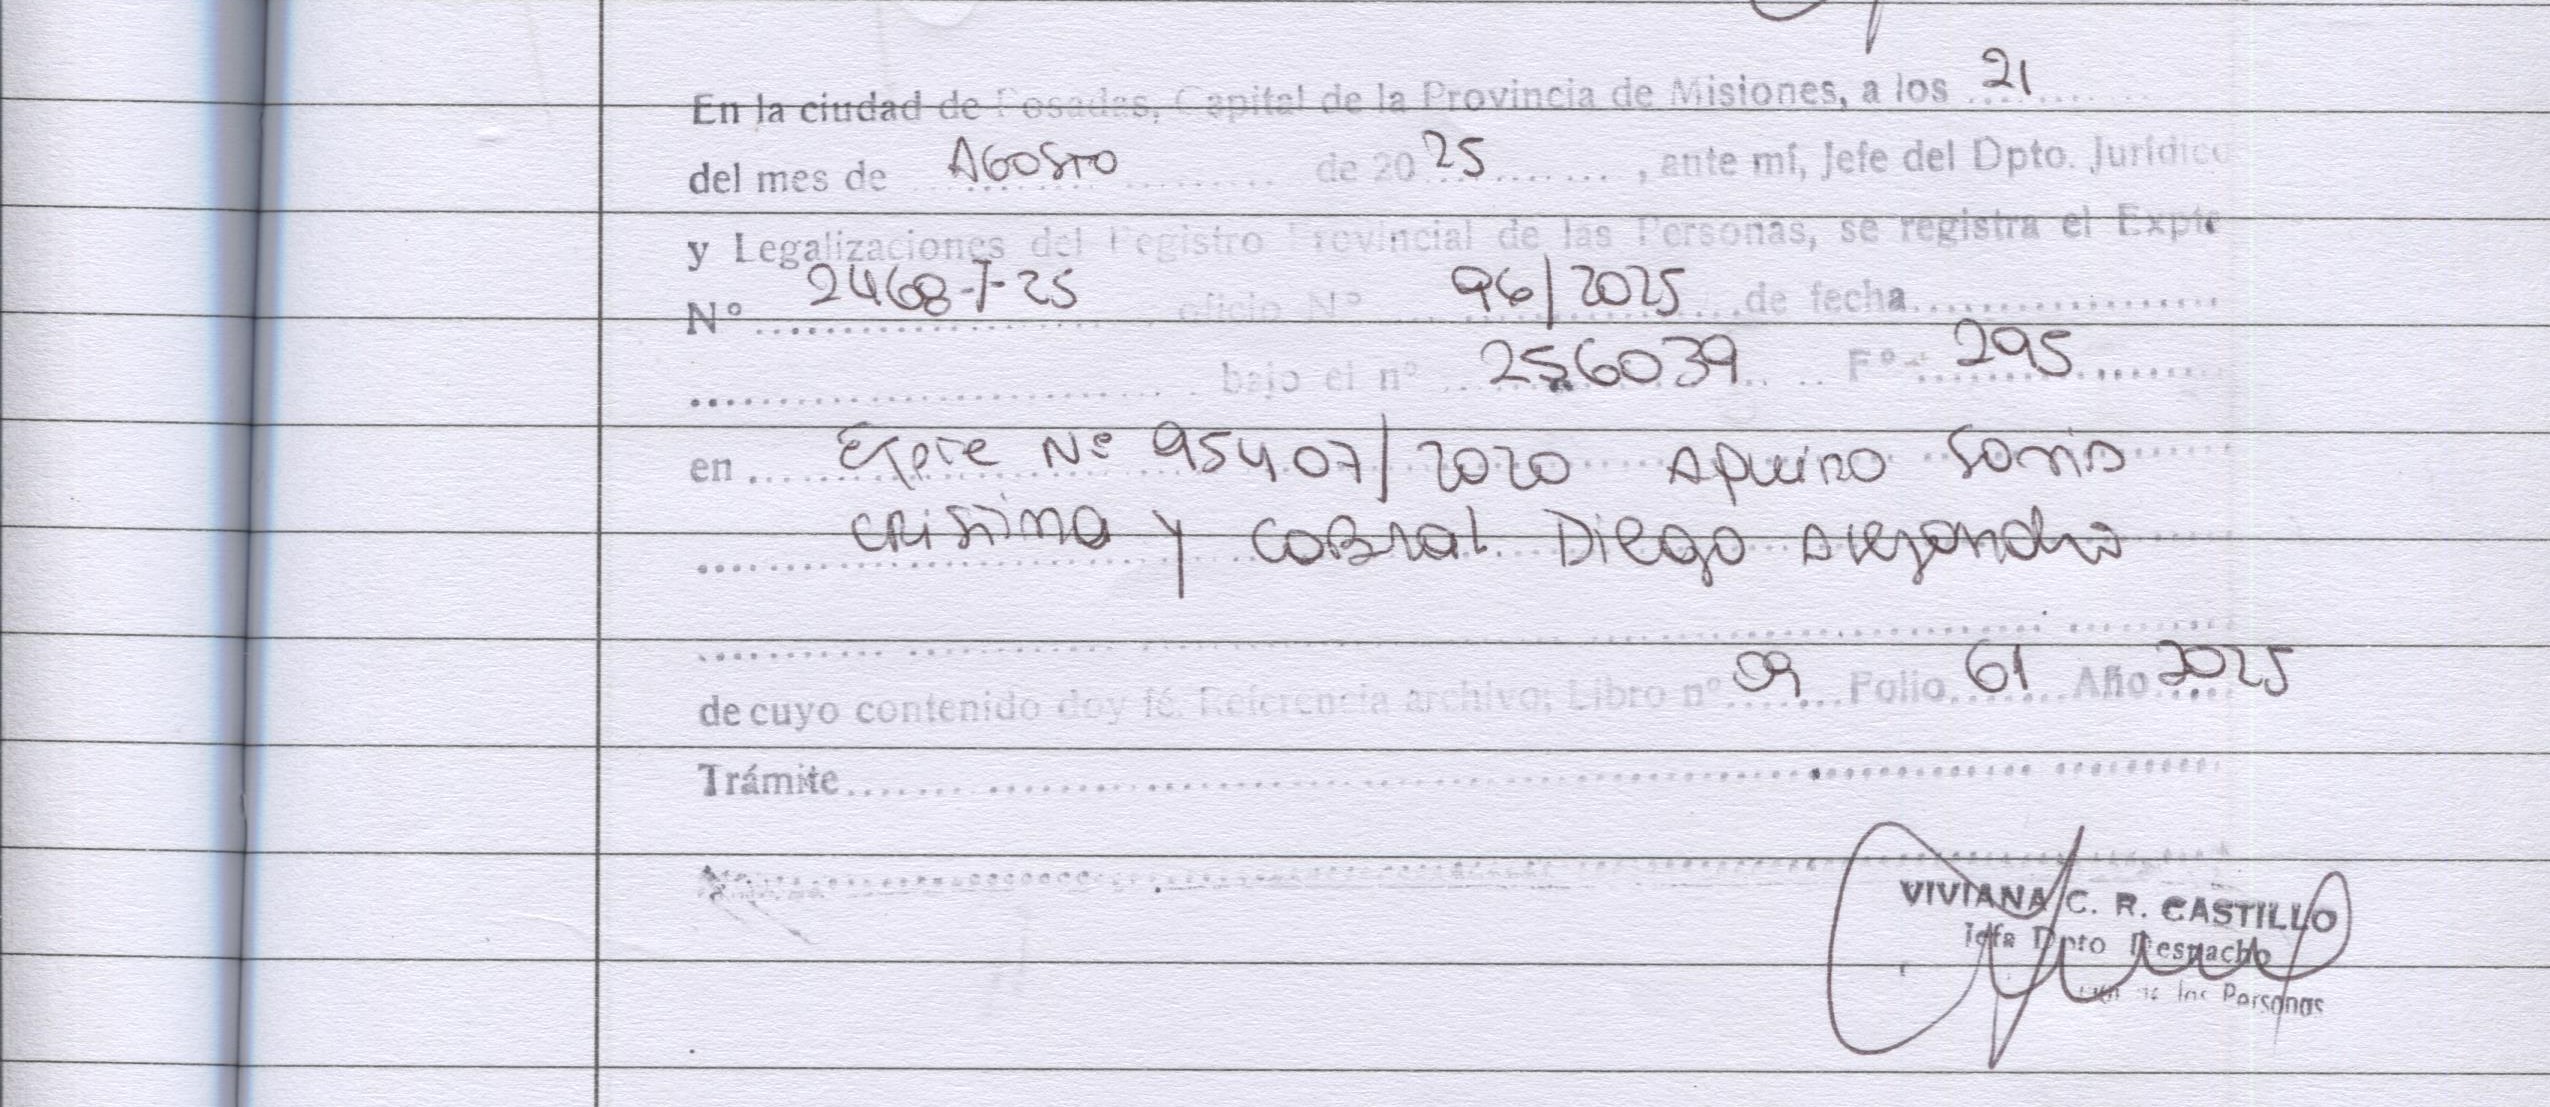 En la ciudad de Posadas, Capital de la Provincia de Misiones, a los 21
del mes de AGOSTO de 20 25, ante mí, Jefe del Dpto. Jurídico
y Legalizaciones del Registro Provincial de las Personas, se registra el Expte
N° 2468-J-25 oficio N° 96/2025 de fecha
bajo el n° 256039 F° 295
en Expte Nº 95407/2020 Aquino Sonia
Cristina y Cabral Diego Alejandro
de cuyo contenido doy fé. Referencia archivo; Libro n° 09 Folio 61 Año 2025
Trámite
VIVIANA C. R. CASTILLO
Jefa Dpto Despacho
de las Personas